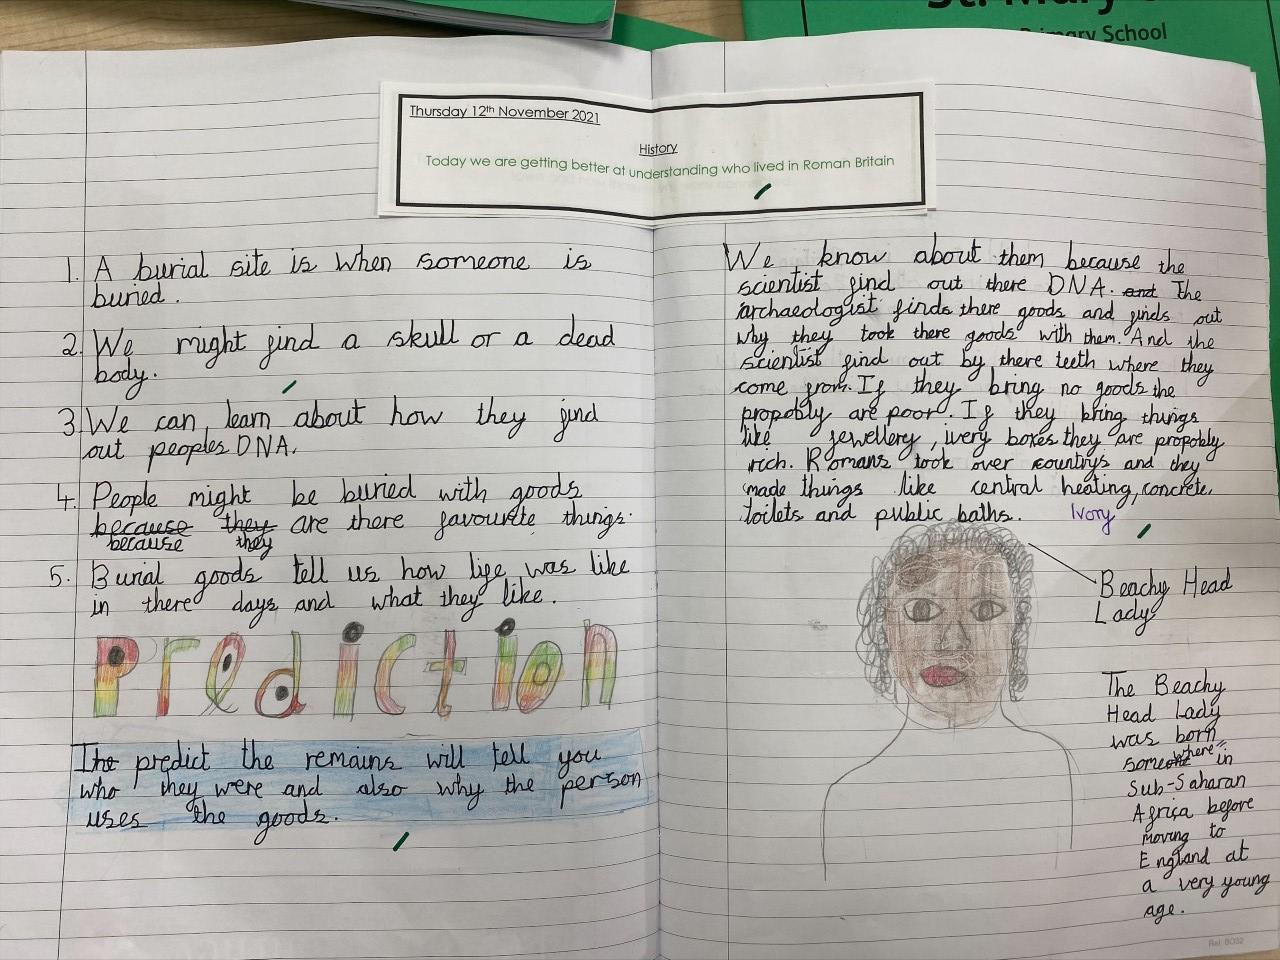 St. Mary's
Primary School
Thursday 12th November 2021
History
Today we are getting better at understanding who lived in Roman Britain
1. A burial site is when someone is
buried.
2. We might find a skull or a dead
body.
3. We can learn about how they find
out peoples DNA.
4. People might be buried with goods
because they are there favourite things.
because they
5. Burial goods tell us how life was like
in there days and what they like.
Prediction
The predict the remains will tell you
who they were and also why the person
uses the goods.
We know about them because the
scientist find out there DNA. and The
archaeologist finds there goods and finds out
why they took there goods with them. And the
scientist find out by there teeth where they
come from. If they bring no goods the
propobly are poor. If they bring things
like jewellery, ivery boxes they are propobly
rich. Romans took over countrys and they
made things like central heating, concrete,
toilets and public baths. Ivory
Beachy Head
Lady
The Beachy
Head Lady
was born
somewhere in
Sub-Saharan
Africa before
moving to
England at
a very young
age.